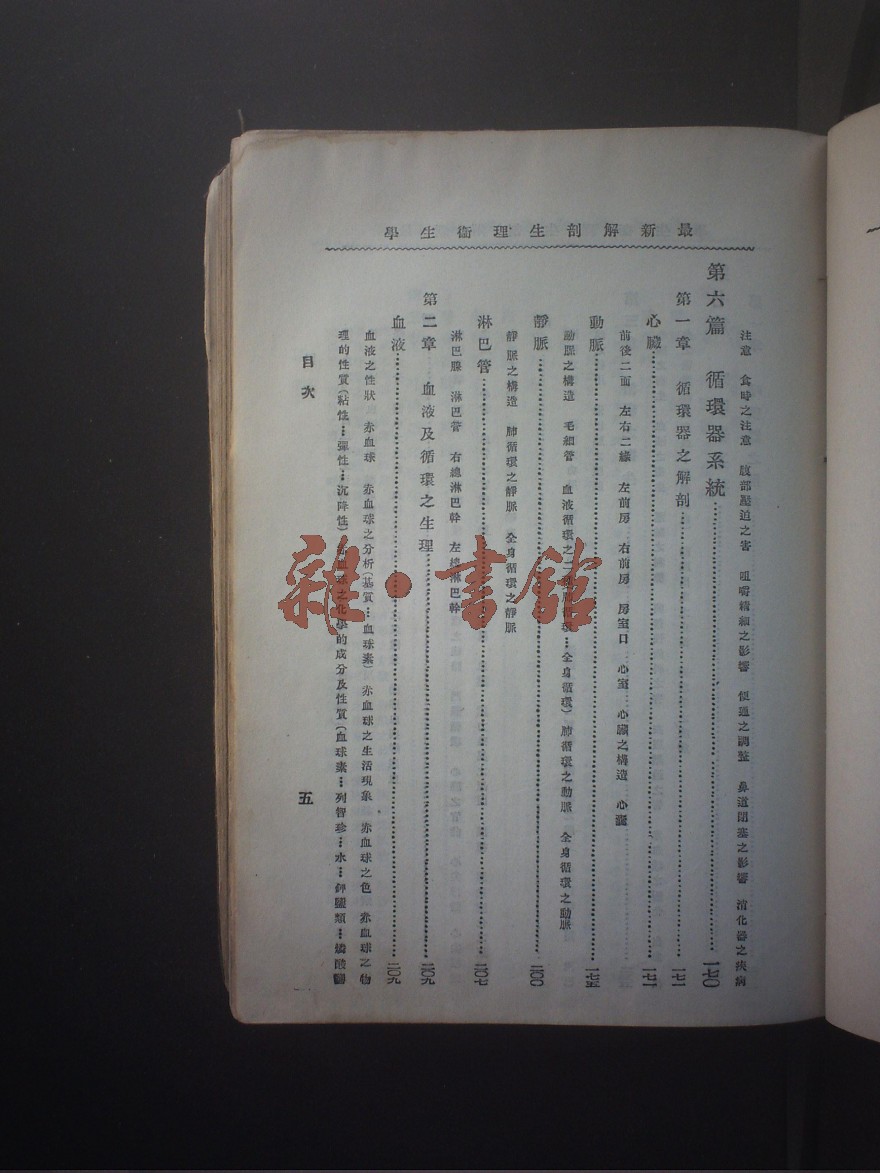 最新解剖生理衞生學
注意　食時之注意　腹部壓迫之害　咀嚼精細之影響　便通之調整　鼻道閉塞之影響　消化器之疾病
第六篇　循環器系統……一七〇
第一章　循環器之解剖……一七一
心臟……一七一
前後二面　左右二緣　左前房　右前房　房室口　心室　心臟之構造　心囊
動脈……一七五
動脈之構造　毛細管　血液循環之二　循環…全身循環）肺循環之動脈　全身循環之動脈
靜脈……二〇〇
靜脈之構造　肺循環之靜脈　全身循環之靜脈
淋巴管……二〇七
淋巴腺　淋巴管　右總淋巴幹　左總淋巴幹
第二章　血液及循環之生理……二〇九
血液……二〇九
血液之性狀　赤血球　赤血球之分析（基質…血球素）　赤血球之生活現象　赤血球之色　赤血球之物
理的性質（粘性…彈性…沉降性）赤血球之化學的成分及性質（血球素…列智珍…水…鉀鹽類…燐酸鹽
目次
五
雜·書館